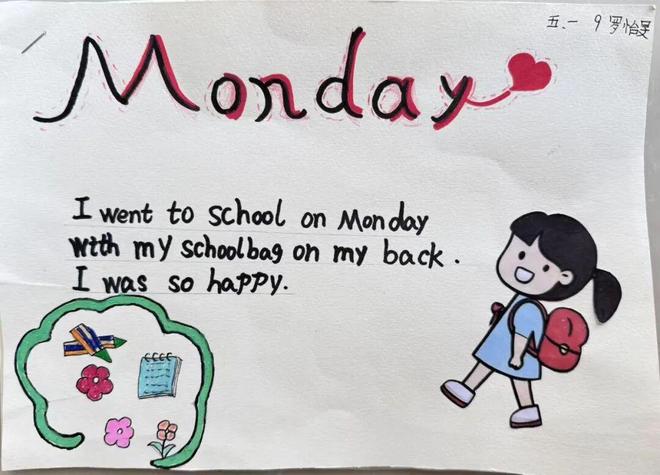 五.一 9 罗怡
Monday
I went to school on Monday
with my schoolbag on my back.
I was so happy.